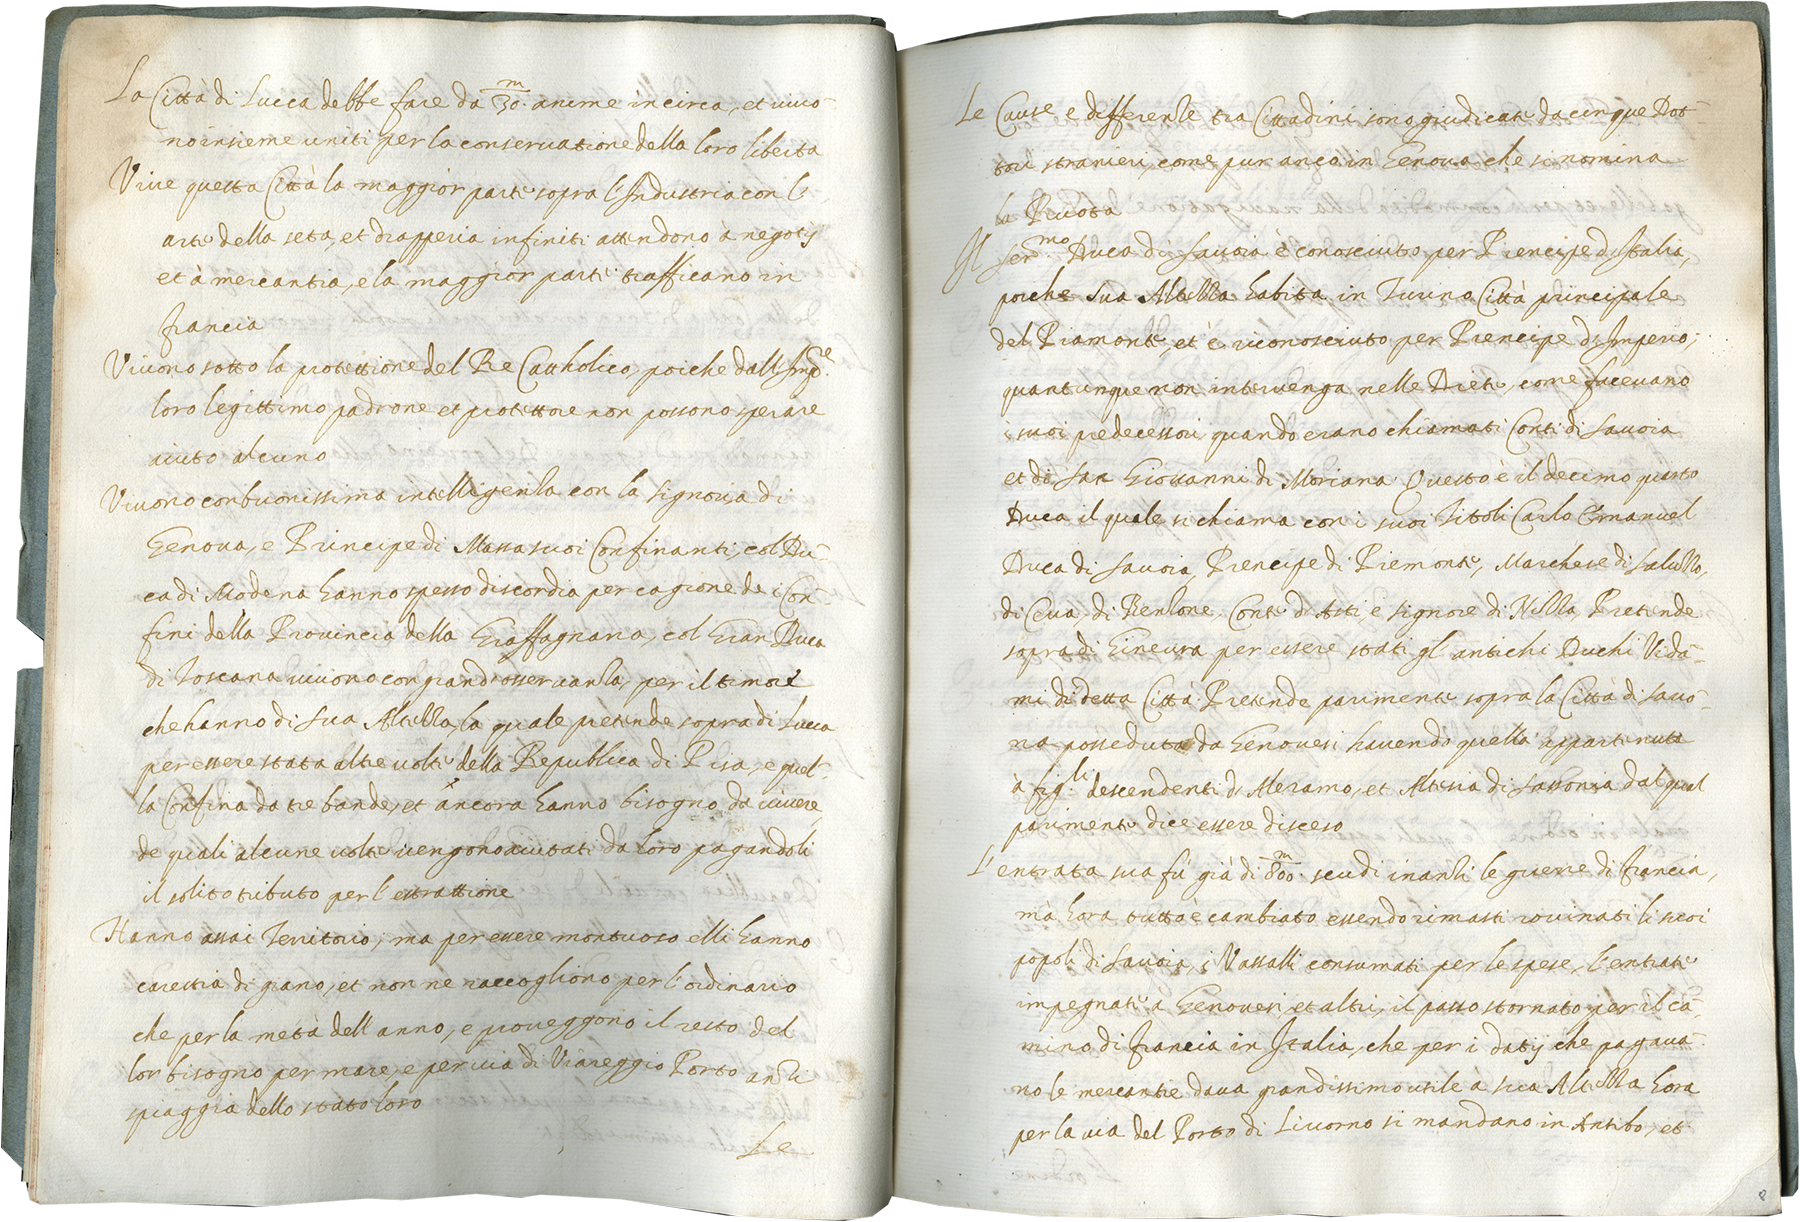 La Città di Lucca debbe fare da 30.m anime in circa, et vivo-
no insieme uniti per la conservatione della loro libertà
Vive questa Città la maggior parte sopra l'Industria con l'
arte della seta, et drapperia infiniti attendono à negotij
et à mercantia, e la maggior parte trafficano in
francia
Vivono sotto la protettione del Re Catholico, poiche dall'Imp.re
loro legittimo padrone et protettore non possono sperare
aiuto alcuno
Vivono con buonissima intelligenza con la signoria di
Genova, e Principe di Massa suoi Confinanti, col Du-
ca di Modena hanno spesso discordia per cagione de i Con-
fini della Provincia della Graffagnana, col Gran Duca
di Toscana vivono con grand'osservanza, per il timore
che hanno di Sua Altezza, la quale pretende sopra di Lucca
per essere stata altre volte della Republica di Pisa, e quel-
la Confina da tre bande, et ancora hanno bisogno da vivere,
de quali alcune volte vengono aiutati da loro pagandoli
il solito tributo per l'estrattione
Hanno assai Territorio, ma per essere montuoso elli hanno
carestia di grano, et non ne raccogliono per l'ordinario
che per la metà dell'anno, e proveggono il resto del
lor bisogno per mare, e per via di Viareggio Porto anzi
spiaggia dello stato loro
Le
Le Cause e differenze tra Cittadini sono giudicate da cinque Dot-
tori stranieri, come pur anco in Genova che si nomina
la Ruota
Il Ser.mo Duca di Savoia è conosciuto per Prencipe d'Italia,
poiche Sua Altezza habita in Turino Città principale
del Piamonte, et è riconosciuto per Prencipe d'Imperio,
quantunque non intervenga nelle Diete, come facevano
i suoi predecessori quando erano chiamati Conti di Savoia
et di San Giovanni di Moriana Questo è il decimo quinto
Duca il quale si chiama con i suoi Titoli Carlo Emanuel
Duca di Savoia, Prencipe di Piemonte, Marchese di Saluzzo,
di Ceva, di Conte d'Asti, e signore di Nizza, Pretende
sopra di Ginevra per essere stati gl'antichi Duchi Vida-
mi di detta Città. Pretende parimente sopra la Città di Savo-
na posseduta da Genovesi havendo quella appartenuta
à fig.li descendenti d'Aleramo, et Altesia di Sassonia dal qual
parimente dice essere disceso
L'entrata sua fù già di 800.m scudi inanzi le guerre di francia,
mà hora tutto è cambiato essendo rimasti rovinati li suoi
popoli di Savoia, i Vassalli consumati per le spese, l'entrate
impegnate à Genovesi, et altri, il passo stornato per il ca-
mino di francia in Italia, che per i datij che pagava-
no le mercantie dava grandissimo utile à sua Altezza hora
per la via del Porto di Livorno si mandano in Antibo, et
8